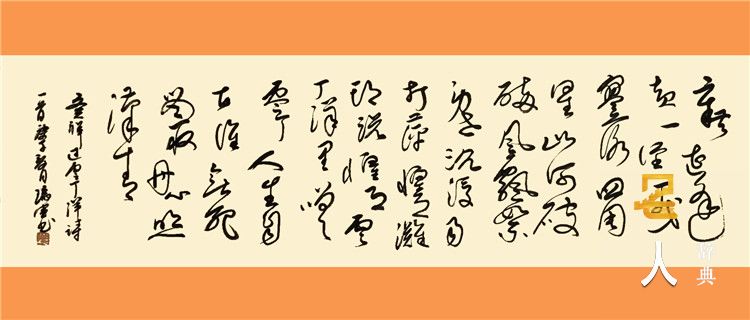 辛苦遭逢
起一经干戈
寥落四周
星山河破
碎风飘絮
身世沉浮雨
打萍惶恐滩
头说惶恐零
丁洋里叹
零丁人生自
古谁无死
留取丹心照
汗青
过零丁洋诗
一首
人
辞典